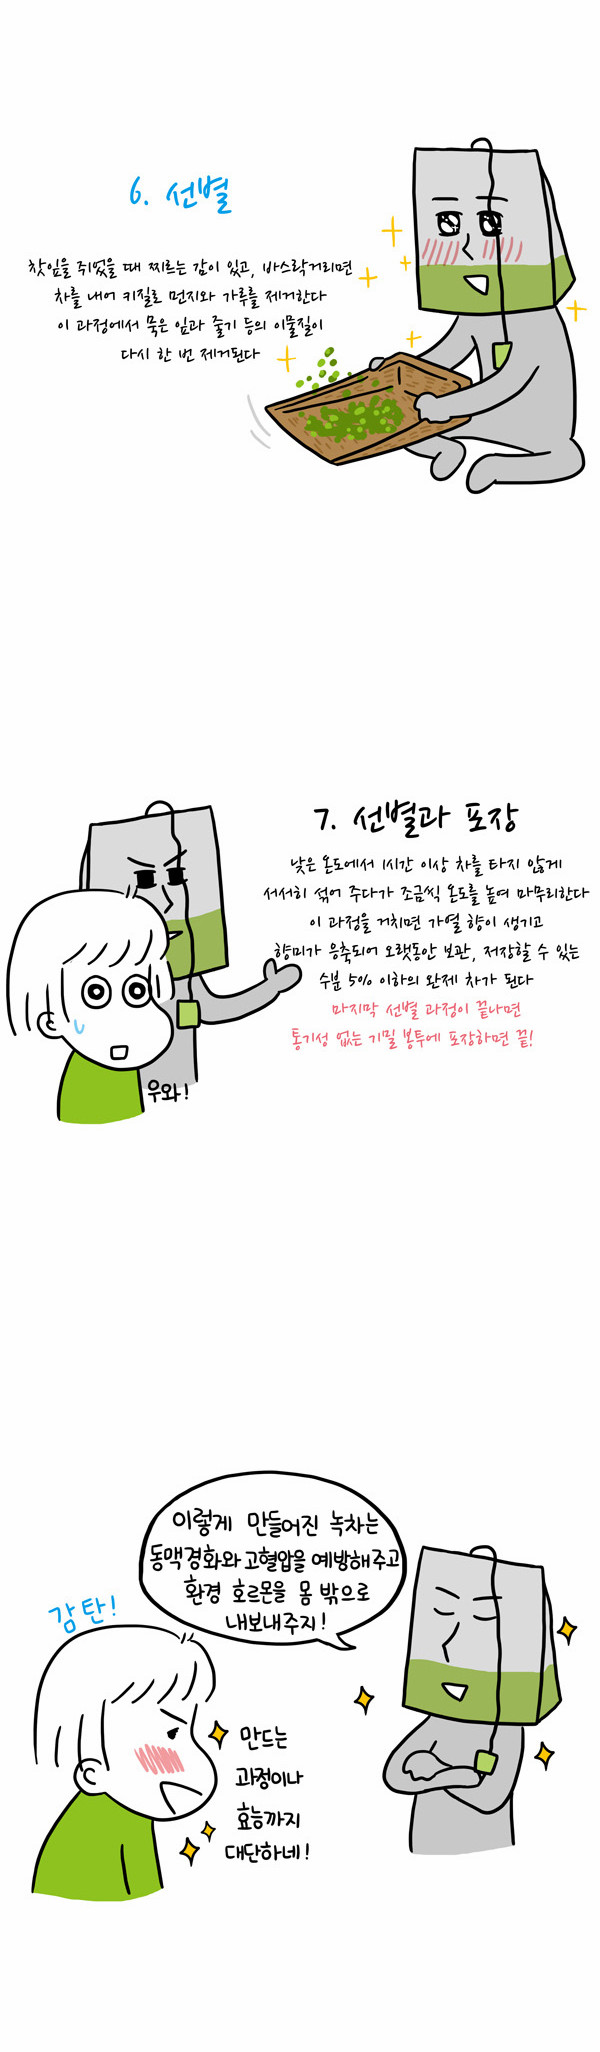 6. 선별
찻잎을 쥐었을 때 찌르는 감이 있고, 바스락거리면
차를 내어 키질로 먼지와 가루를 제거한다
이 과정에서 묵은 잎과 줄기 등의 이물질이
다시 한 번 제거된다
7. 선별과 포장
낮은 온도에서 1시간 이상 차를 타지 않게
서서히 섞어 주다가 조금씩 온도를 높여 마무리한다
이 과정을 거치면 가열 향이 생기고
향미가 응축되어 오랫동안 보관, 저장할 수 있는
수분 5% 이하의 완제 차가 된다
마지막 선별 과정이 끝나면
통기성 없는 기밀 봉투에 포장하면 끝!
우와!
이렇게 만들어진 녹차는
동맥경화와 고혈압을 예방해주고
환경 호르몬을 몸 밖으로
내보내주지!
감탄!
만드는
과정이나
효능까지
대단하네!